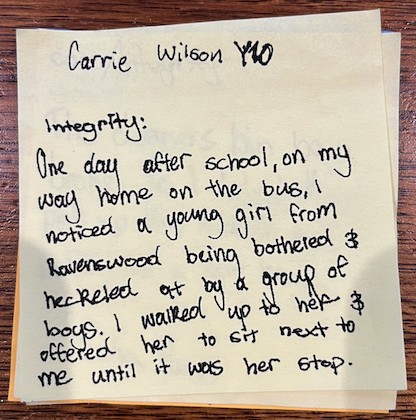 Carrie Wilson Y10
Integrity:
One day after school, on my
way home on the bus, I
noticed a young girl from
Ravenswood being bothered &
heckeled at by a group of
boys. I walked up to her &
offered her to sit next to
me until it was her stop.